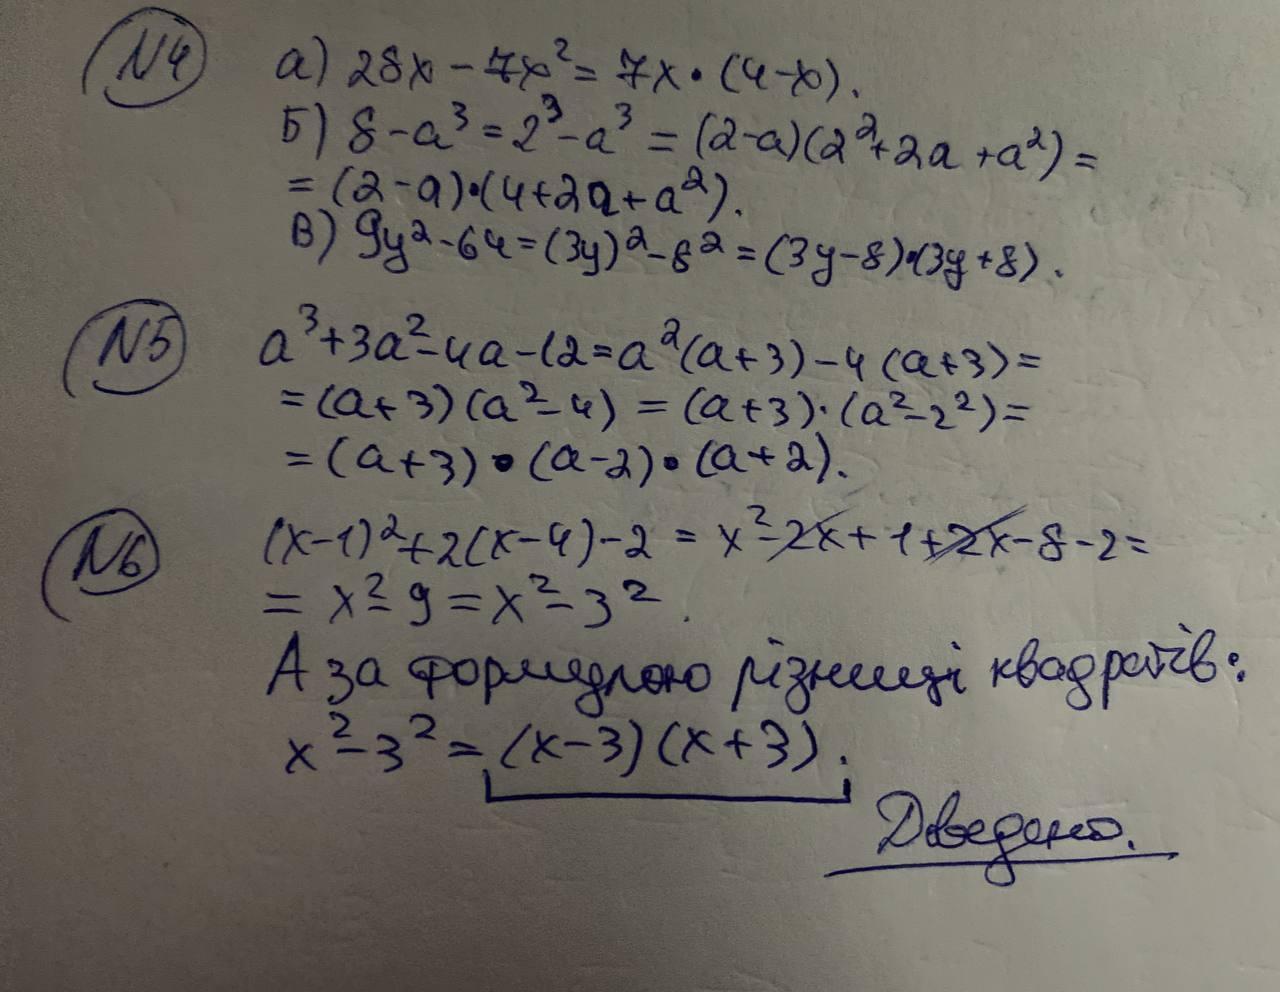 N4 а) 28x - 7x² = 7x · (4-x).
Б) 8 - a³ = 2³ - a³ = (2-a)(2²+2a+a²) =
= (2-a)·(4+2a+a²).
В) 9y² - 64 = (3y)² - 8² = (3y-8)·(3y+8).
N5 a³+3a²-4a-12 = a²(a+3) - 4(a+3) =
= (a+3)(a²-4) = (a+3)·(a²-2²) =
= (a+3)·(a-2)·(a+2).
N6 (x-1)²+2(x-4)-2 = x²-2x+1+2x-8-2 =
= x²-9 = x²-3².
А за формулою різниці квадратів:
x²-3² = (x-3)(x+3).
Доведено.